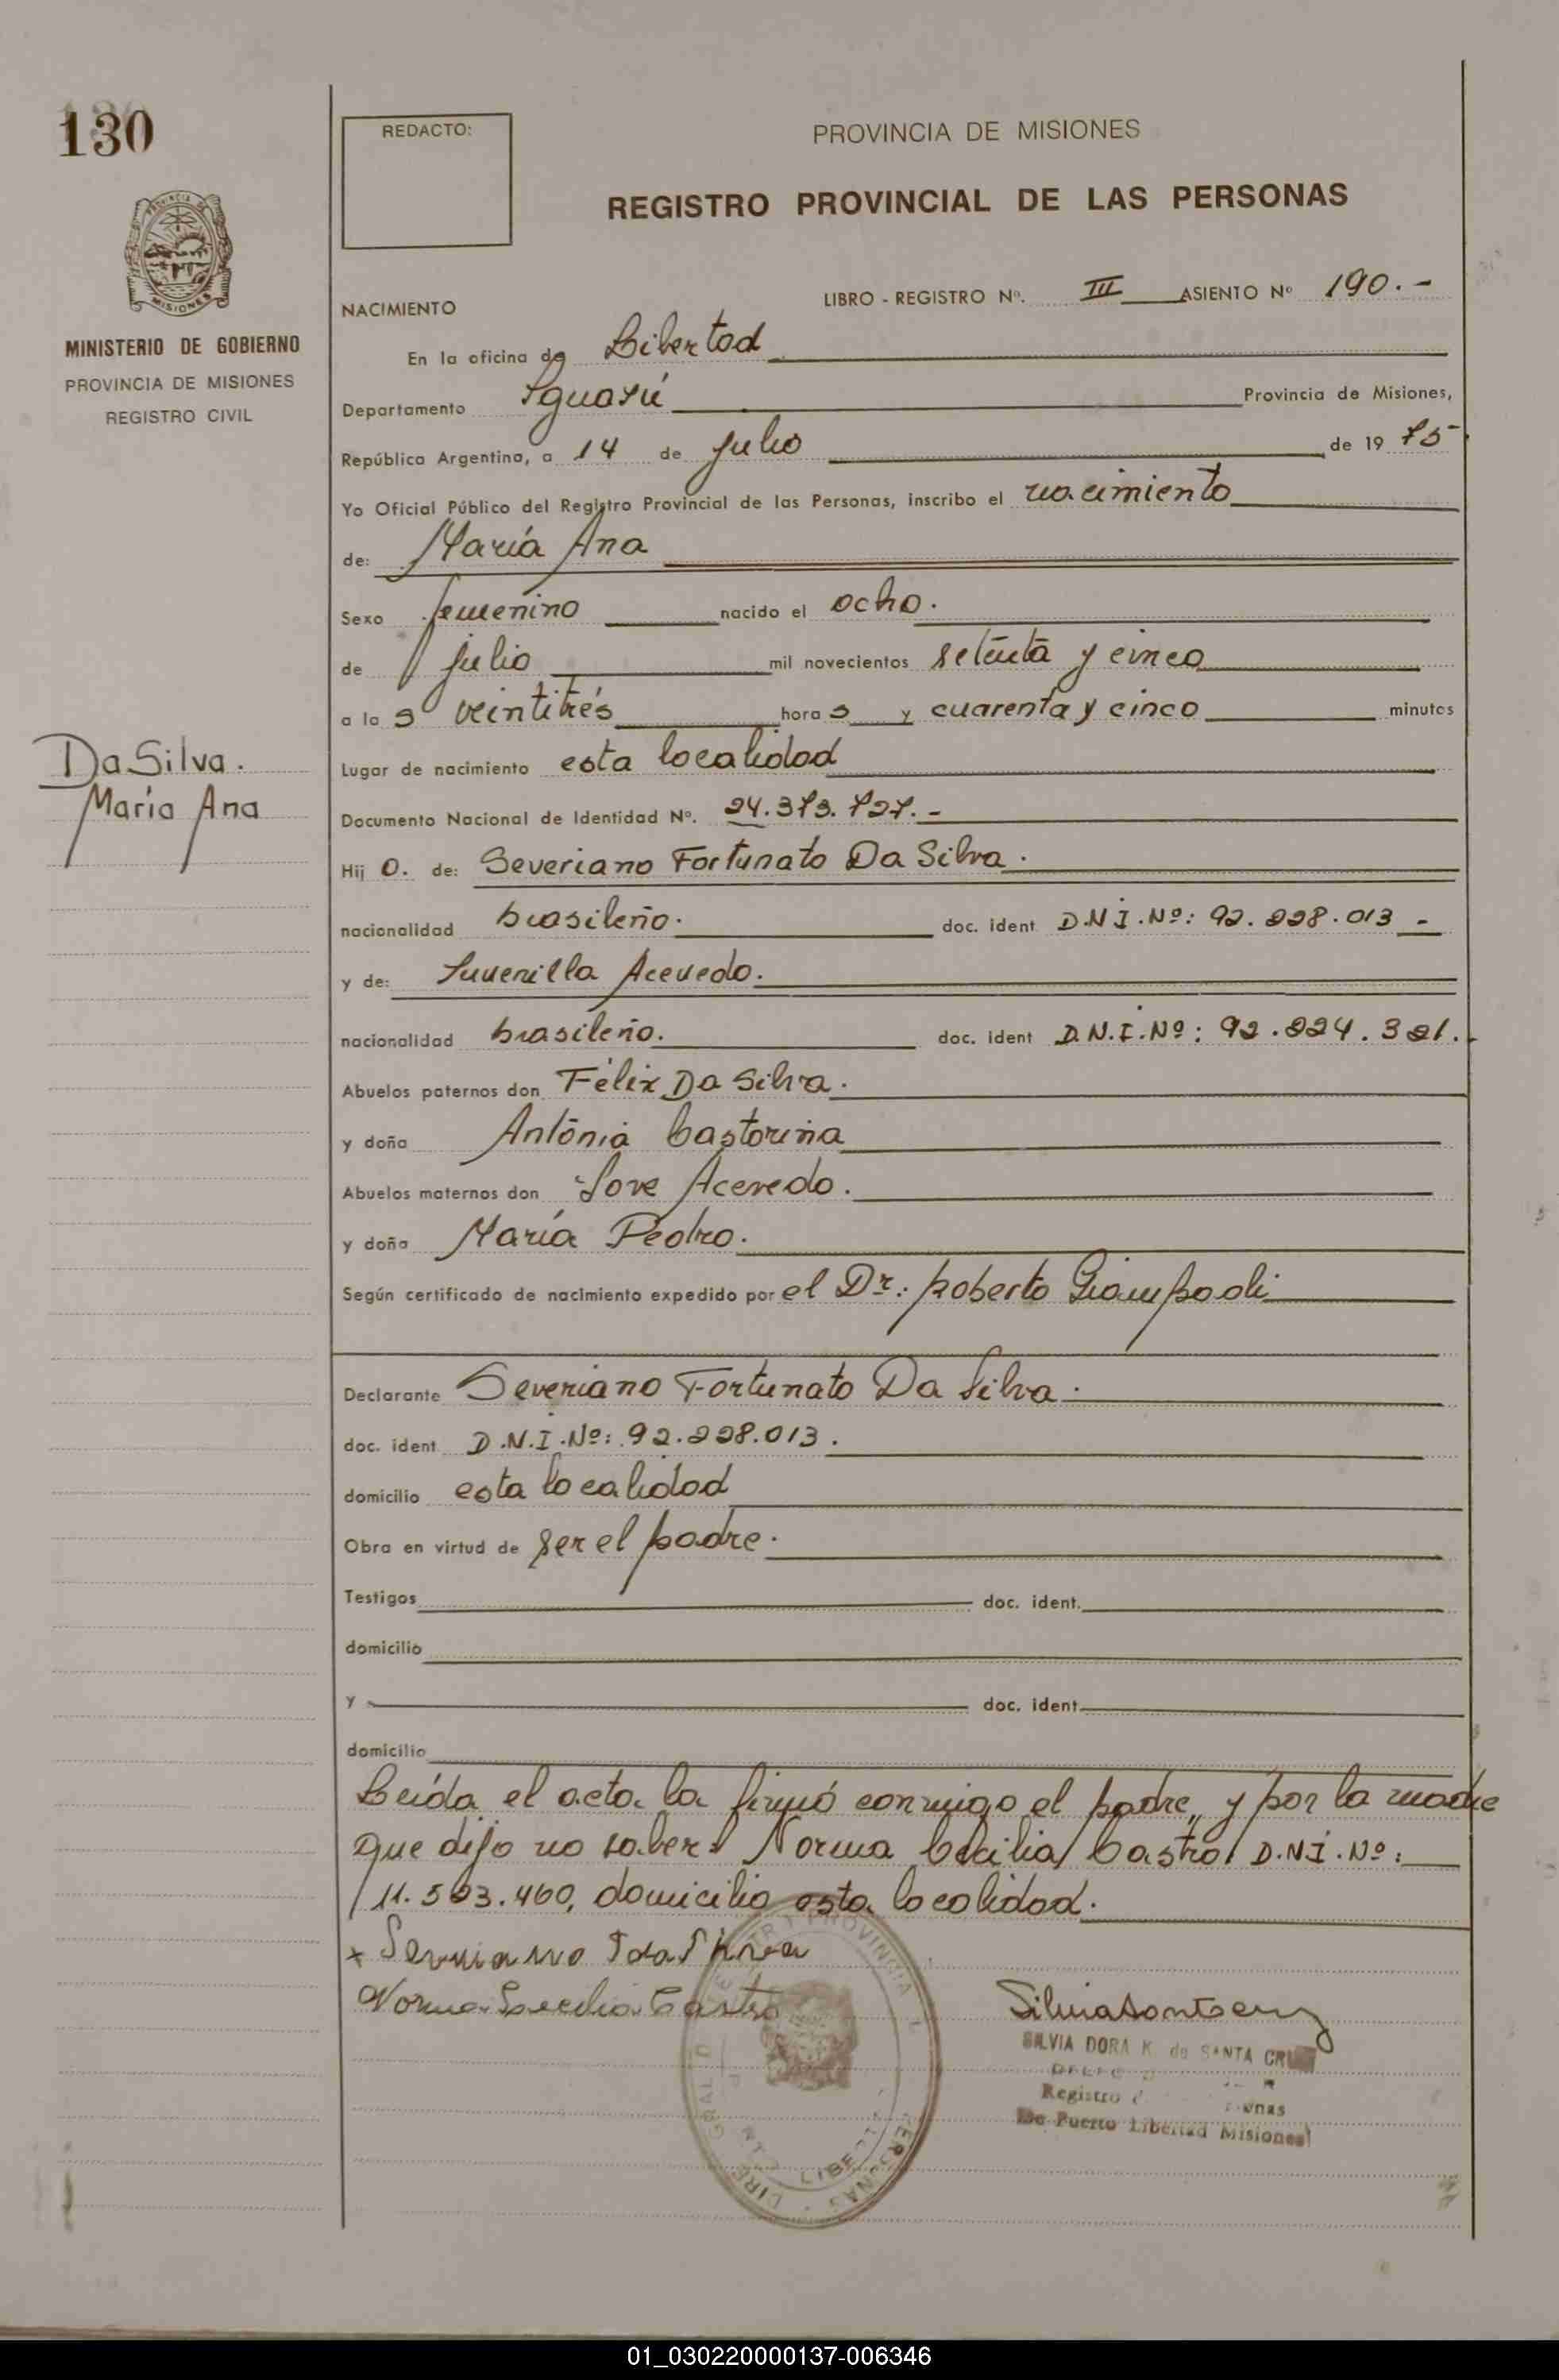 130
REDACTO:
PROVINCIA DE MISIONES
REGISTRO PROVINCIAL DE LAS PERSONAS
MINISTERIO DE GOBIERNO
PROVINCIA DE MISIONES
REGISTRO CIVIL
NACIMIENTO
LIBRO - REGISTRO Nº. III ASIENTO Nº 190.-
En la oficina de Libertad
Departamento Iguazú Provincia de Misiones,
República Argentina, a 14 de julio de 1975
Yo Oficial Público del Registro Provincial de las Personas, inscribo el nacimiento
de: María Ana
Sexo femenino nacido el ocho.
de julio mil novecientos setenta y cinco
a las veintitrés horas y cuarenta y cinco minutos
Da Silva.
María Ana
Lugar de nacimiento esta localidad
Documento Nacional de Identidad Nº. 24.373.727.-
Hijo. de: Severiano Fortunato Da Silva.
nacionalidad brasileño. doc. ident D.N.I.Nº: 92.228.013 -
y de: Juvenilla Acevedo.
nacionalidad brasileño. doc. ident D.N.I.Nº: 92.224.321.
Abuelos paternos don Félix Da Silva.
y doña Antónia Castorina
Abuelos maternos don Jove Acevedo.
y doña María Pedro.
Según certificado de nacimiento expedido por el Dr: Roberto Giampaoli
Declarante Severiano Fortunato Da Silva.
doc. ident D.N.I.Nº: 92.228.013.
domicilio esta localidad
Obra en virtud de ser el padre.
Testigos doc. ident.
domicilio
y doc. ident.
domicilio
Leída el acta la firmó conmigo el padre, y por la madre
que dijo no saber Norma Cecilia Castro D.N.I.Nº:
11.503.460, domicilio esta localidad.
x Severiano F da Silva
Norma Cecilia Castro
SILVIA DORA K. de SANTA CRUZ
Registro
De Puerto Libertad Misiones
01_030220000137-006346